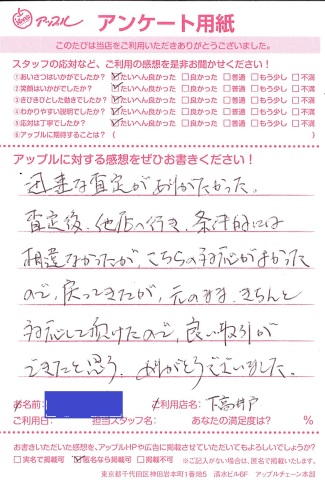 アップル アンケート用紙
このたびは当店をご利用いただきありがとうございました。
スタッフの応対など、ご利用の感想を是非お聞かせください！
①あいさつはいかがでしたか？ ☑たいへん良かった □良かった □普通 □もう少し □不満
②笑顔はいかがでしたか？ ☑たいへん良かった □良かった □普通 □もう少し □不満
③きびきびとした動きでしたか？ ☑たいへん良かった □良かった □普通 □もう少し □不満
④わかりやすい説明でしたか？ ☑たいへん良かった □良かった □普通 □もう少し □不満
⑤応対は丁寧でしたか？ ☑たいへん良かった □良かった □普通 □もう少し □不満
⑥アップルに期待することは？（ ）
アップルに対する感想をぜひお書きください！
迅速な査定がありがたかった。
査定後、他店へ行き、条件的には
相違なかったが、こちらの対応がよかった
ので、戻ってきたが、元のまま、きちんと
対応して頂けたので、良い取引が
できたと思う。ありがとうございました。
お名前: ご利用店名: 下高井戸
ご利用日: 担当スタッフ名: あなたの満足度は？ %
お書きいただいた感想を、アップルHPや広告に掲載させていただいてもよろしいでしょうか？
□実名で掲載可 ☑匿名なら掲載可 □掲載不可 ※ご記入がない場合は、匿名で掲載いたします。
東京都千代田区神田岩本町1番地5 清水ビル6F アップルチェーン本部